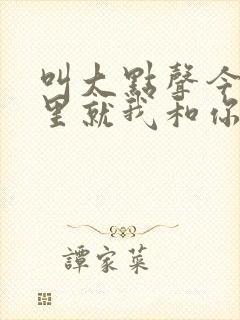 叫太點聲今
里就我和你
譚家菜